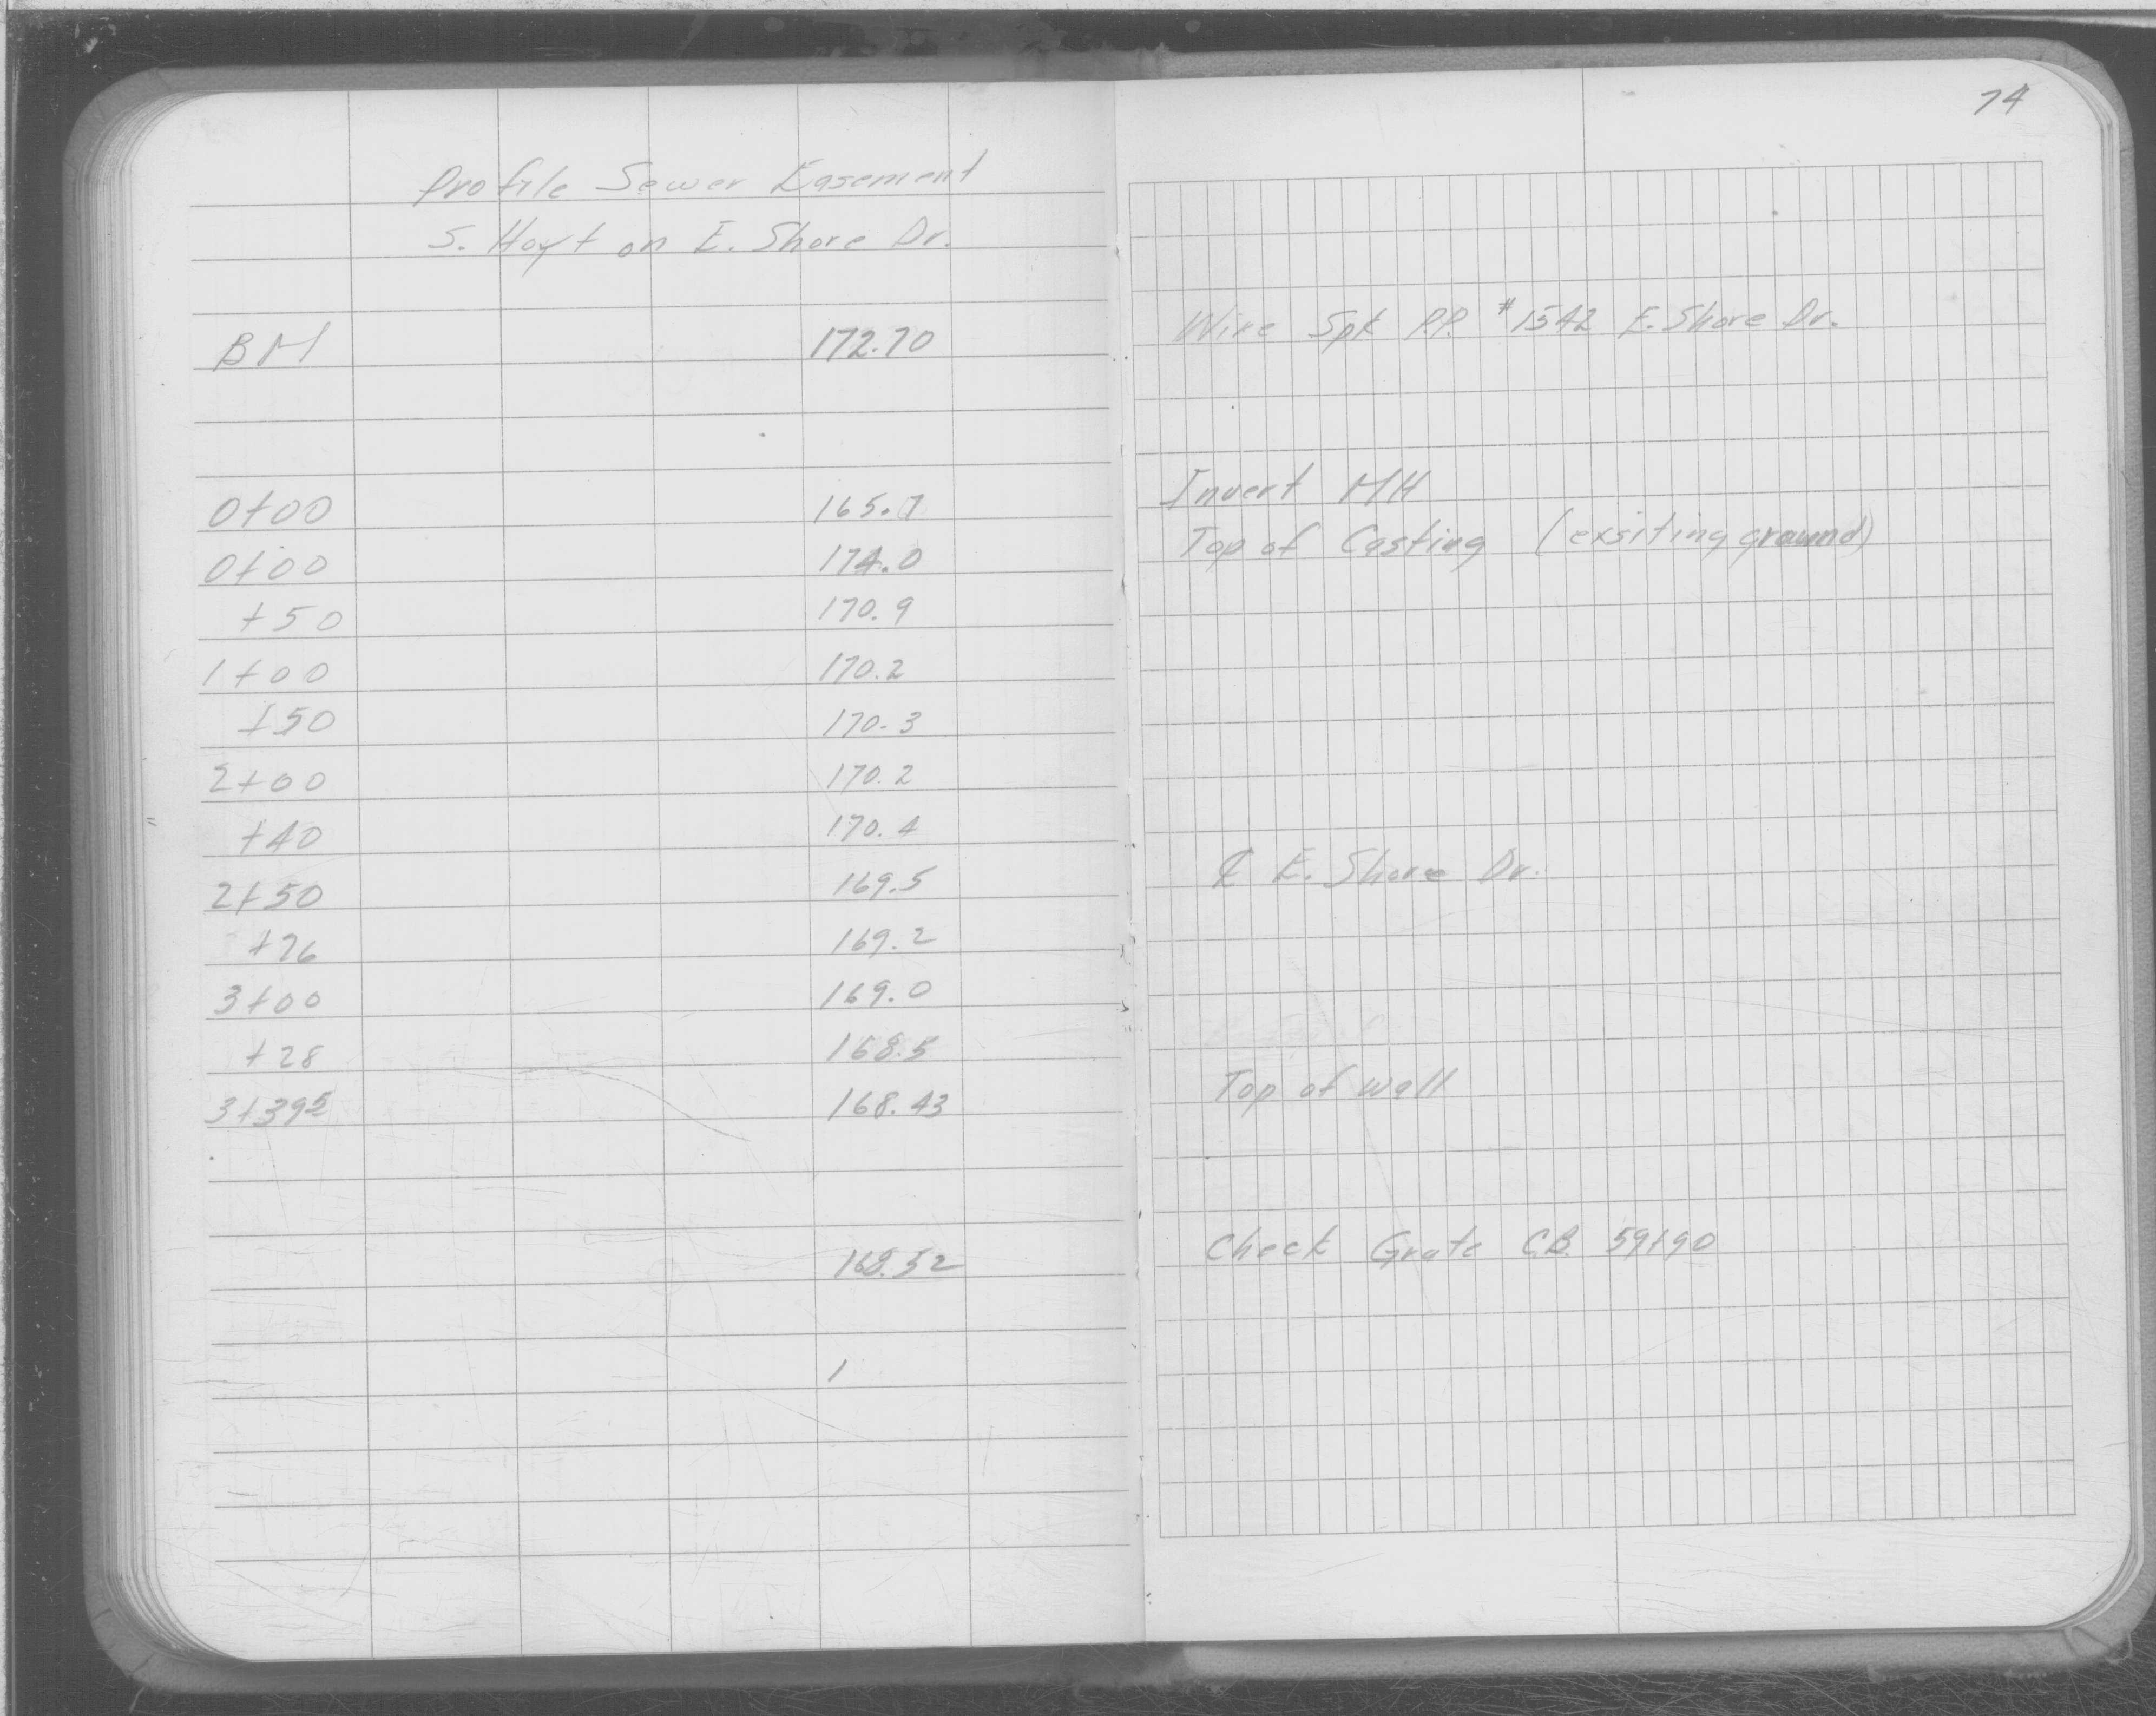 74
Profile Sewer Easement
S. Hoyt on E. Shore Dr.
BM 172.70 Wire Spk P.P. #1542 E. Shore Dr.
0+00 165.7 Invert MH
0+00 174.0 Top of Casting (exsiting ground)
+50 170.9
1+00 170.2
+50 170.3
2+00 170.2
+40 170.4
2+50 169.5 ℄ E. Shore Dr.
+76 169.2
3+00 169.0
+28 168.5
3+395 168.43 Top of wall
168.52 Check Grate C.B. 59+90
1